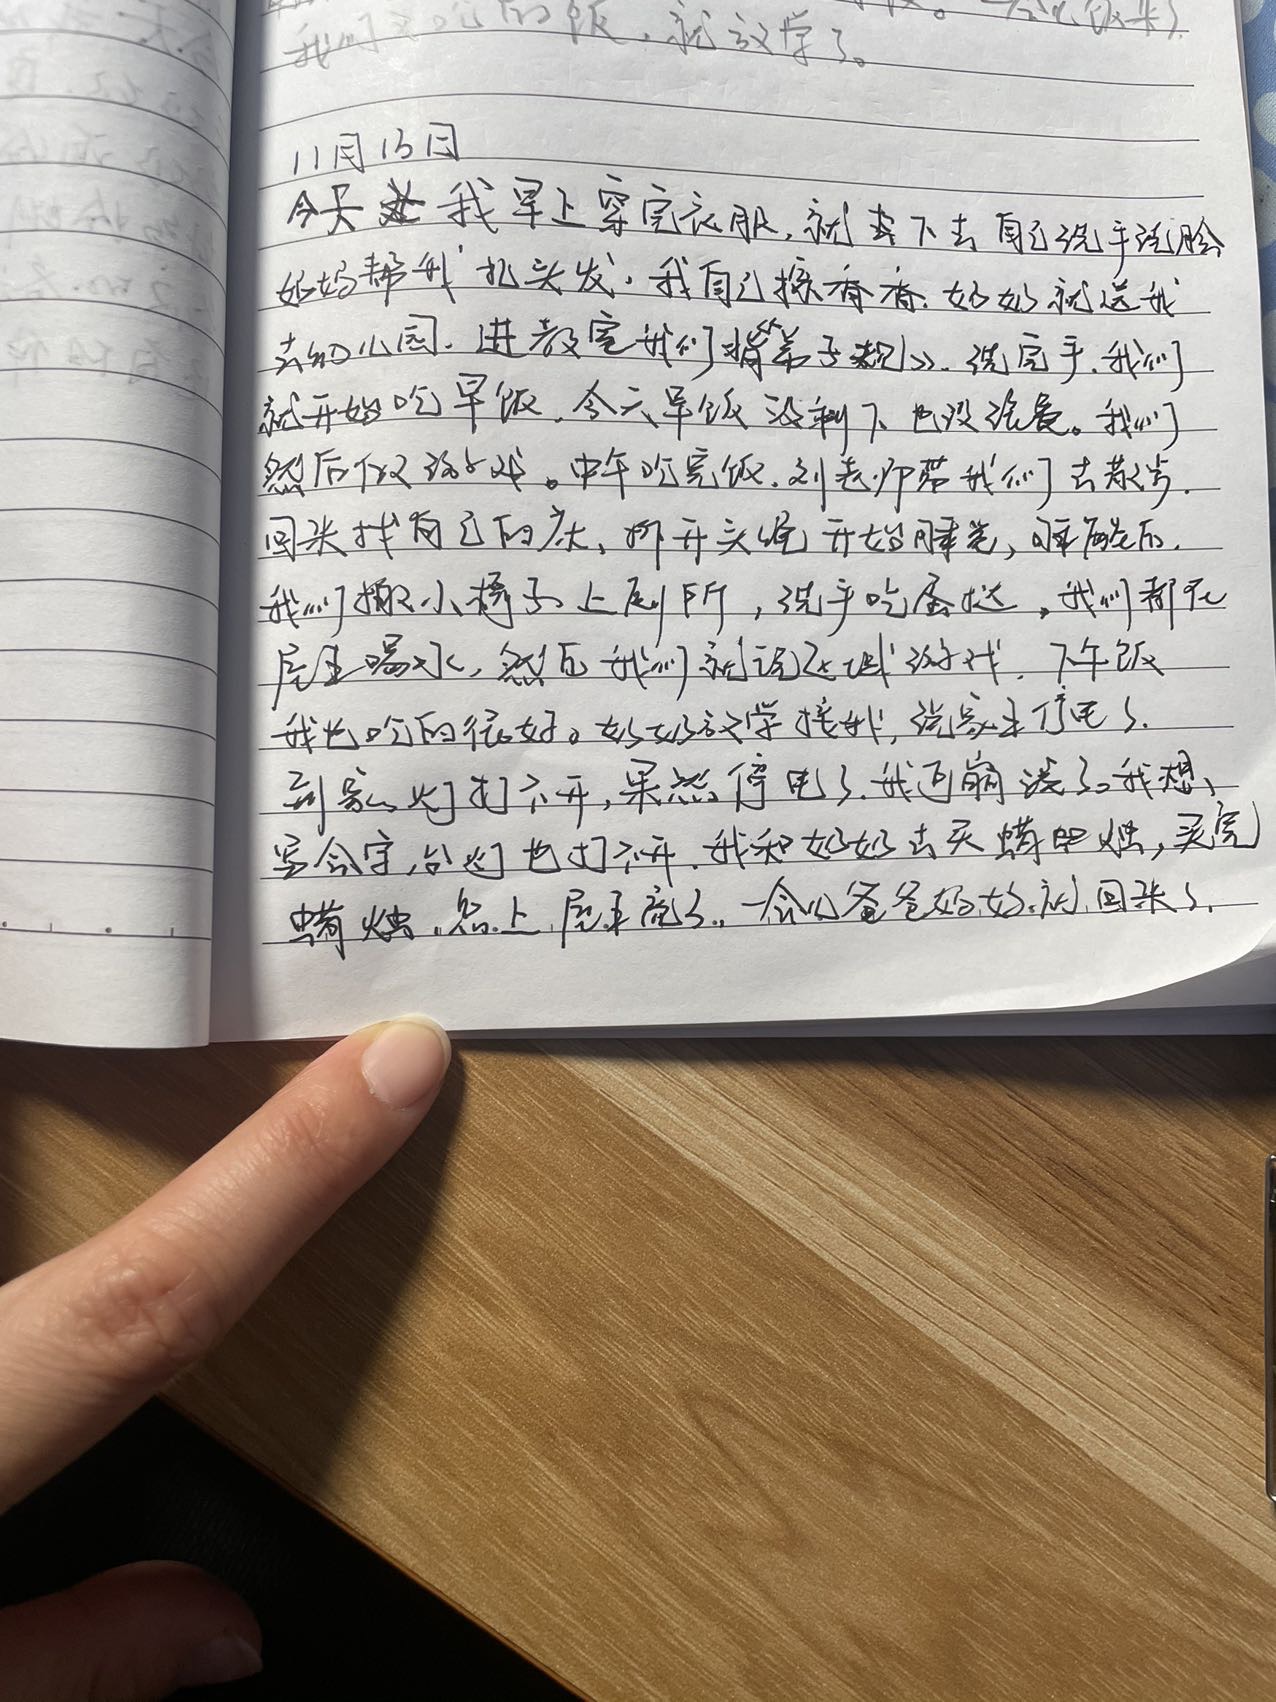 我们
的饭,就放学了。
11月13日
今天 我早上穿完衣服,就去下去自己洗手洗脸
妈妈帮我扎头发,我自己擦香香.奶奶就送我
去幼儿园.进教室我们背《弟子规》.洗完手.我们
就开始吃早饭.今天早饭没剩下也没浪费。我们
然后做游戏。中午吃完饭.刘老师带我们去散步.
回来找自己的床、拆开头绳开始睡觉,睡醒后.
我们搬小椅子上厕所,洗手吃蛋挞。我们都在
屋里喝水,然后我们就玩区域游戏.下午饭
我也吃的很好。奶奶放学接我,说家里停电了.
到家灯打不开,果然停电了.我可崩溃了。我想、
写会字,台灯也打不开.我和奶奶去买蜡 烛,买完
蜡烛,点上屋里亮了.一会儿爸爸妈妈就回来了.